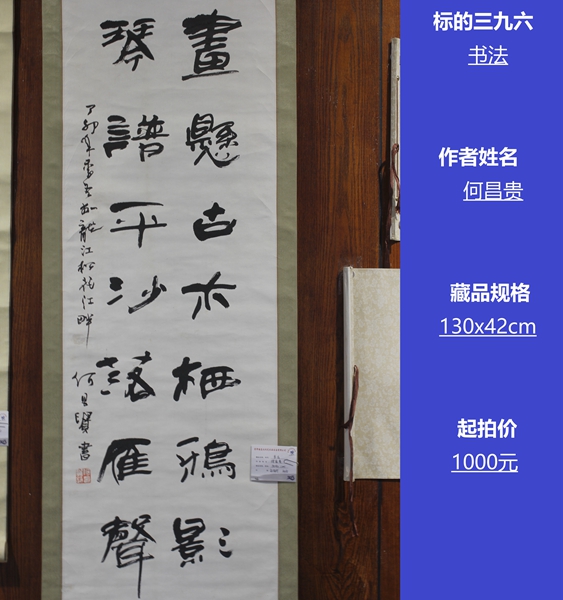 畫懸古木栖鴉影
琴譜平沙落雁聲
丁卯年 龍江松花江畔
何昌 書
标的三九六
书法
作者姓名
何昌贵
藏品规格
130x42cm
起拍价
1000元